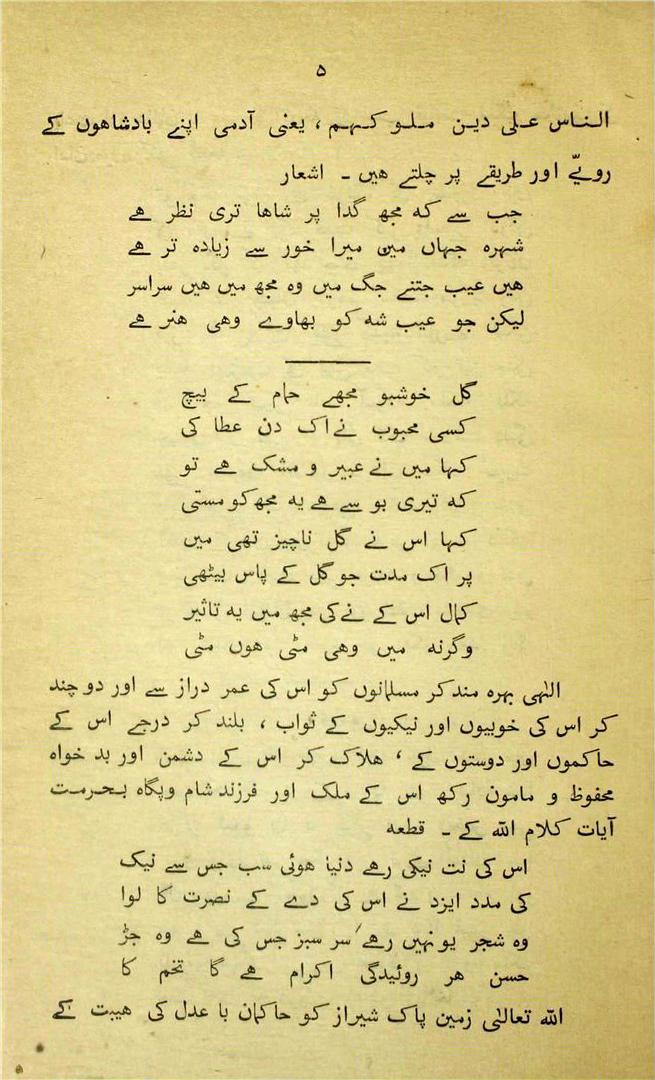 ۵
النـاس عـلی دیـن مـلـو کـہـم ، یعنی آدمی اپنے بادشاھوں کے
رویّے اور طریقے پر چلتے ھیں ۔ اشعار
جب سے کہ مجھ گدا پر شاھا تری نظر ھے
شہرہ جہاں میں میرا خور سے زیادہ تر ھے
ھیں عیب جتنے جگ میں وہ مجھ میں ھیں سراسر
لیکن جو عیب شہ کو بھاوے وھی ھنر ھے
گل خوشبو مجھے حمام کے بیچ
کسی محبوب نے اک دن عطا کی
کہا میں نے عبیر و مشک ھے تو
کہ تیری بو سے ھے یہ مجھ کو مستی
کہا اس نے گل ناچیز تھی میں
پر اک مدت جو گل کے پاس بیٹھی
کمال اس کے نے کی مجھ میں یہ تاثیر
وگرنہ میں وھی مٹی ھوں مٹی
الٰہی بہرہ مند کر مسلمانوں کو اس کی عمر دراز سے اور دو چند
کر اس کی خوبیوں اور نیکیوں کے ثواب ، بلند کر درجے اس کے
حاکموں اور دوستوں کے ، ھلاک کر اس کے دشمن اور بد خواہ
محفوظ و مامون رکھ اس کے ملک اور فرزند شام و پگاہ بـحـرمـت
آیات کلام اللہ کے ۔ قطعہ
اس کی نت نیکی رھے دنیا ھوئی سب جس سے نیک
کی مدد ایزد نے اس کی دے کے نصرت کا لوا
وہ شجر یونہیں رھے سر سبز جس کی ھے وہ جڑ
حسن ھر روئیدگی اکرام ھے گا تخم کا
اللہ تعالیٰ زمین پاک شیراز کو حاکمان با عدل کی ھیبت کے